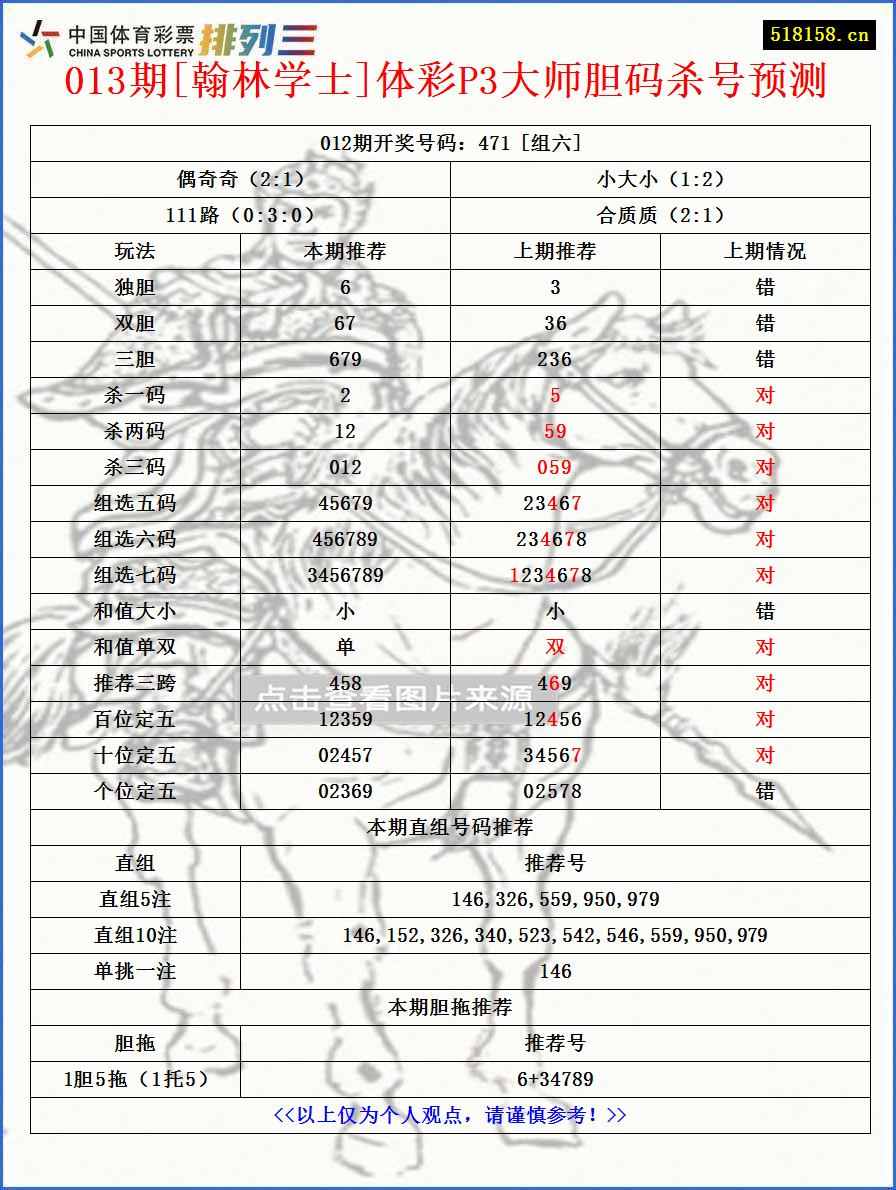 中国体育彩票 排列三
CHINA SPORTS LOTTERY
518158.cn
013期[翰林学士]体彩P3大师胆码杀号预测
012期开奖号码：471 [组六]
偶奇奇（2:1） 小大小（1:2）
111路（0:3:0） 合质质（2:1）
玩法 本期推荐 上期推荐 上期情况
独胆 6 3 错
双胆 67 36 错
三胆 679 236 错
杀一码 2 5 对
杀两码 12 59 对
杀三码 012 059 对
组选五码 45679 23467 对
组选六码 456789 234678 对
组选七码 3456789 1234678 对
和值大小 小 小 错
和值单双 单 双 对
推荐三跨 458 469 对
点击查看图片来源
百位定五 12359 12456 对
十位定五 02457 34567 对
个位定五 02369 02578 错
本期直组号码推荐
直组 推荐号
直组5注 146,326,559,950,979
直组10注 146,152,326,340,523,542,546,559,950,979
单挑一注 146
本期胆拖推荐
胆拖 推荐号
1胆5拖（1托5） 6+34789
<<以上仅为个人观点，请谨慎参考！>>